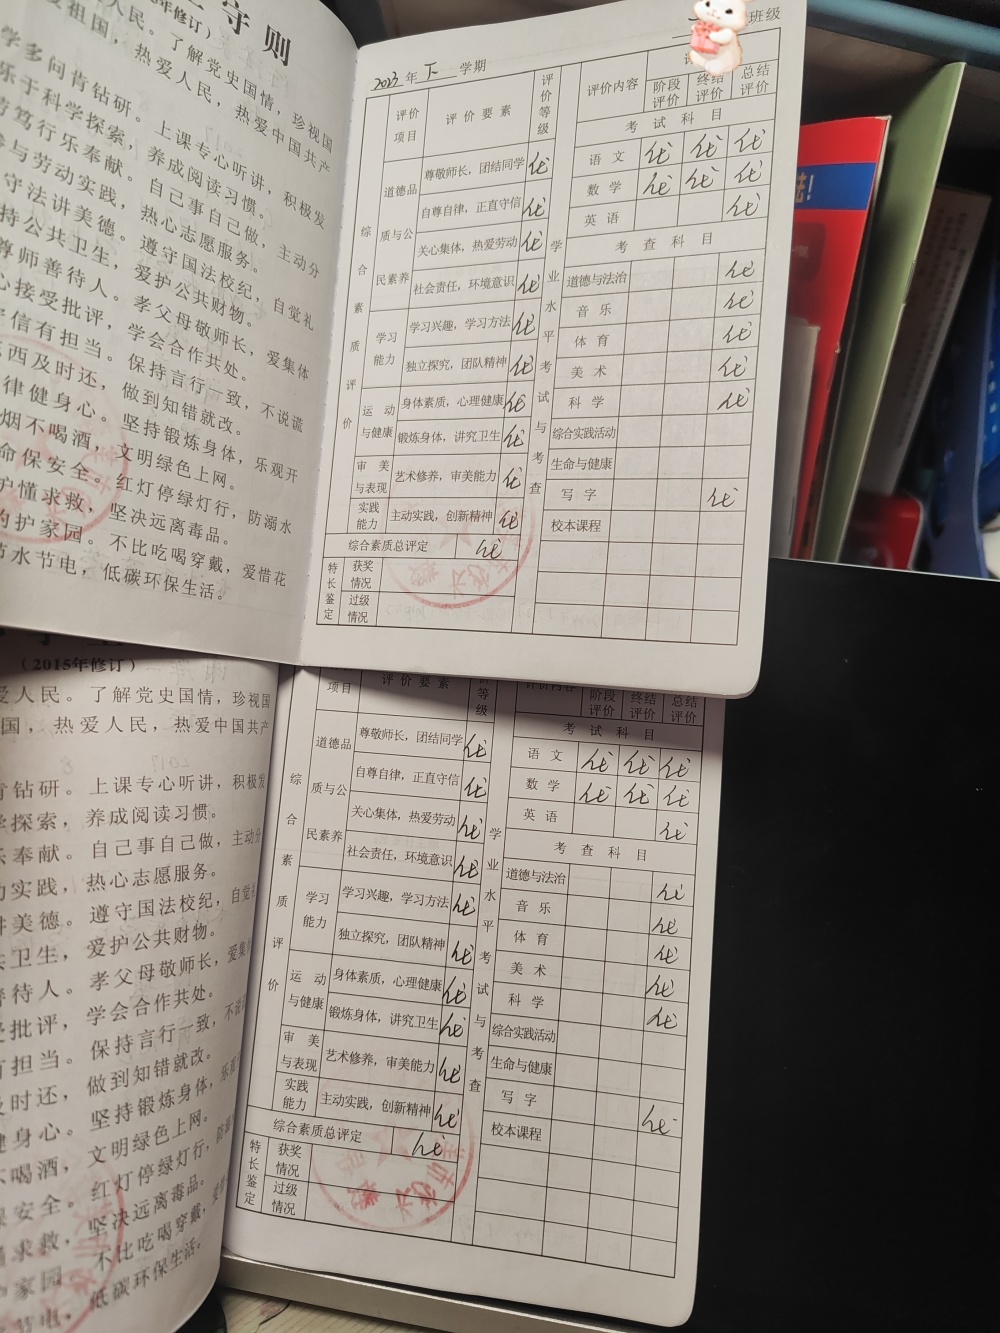 守则
年修订）
人民。了解党史国情，珍视国
祖国，热爱人民，热爱中国共产
学多问肯钻研。上课专心听讲，积极发
乐于科学探索，养成阅读习惯。
笃行乐奉献。自己事自己做，主动分
参与劳动实践，热心志愿服务。
守法讲美德。遵守国法校纪，自觉礼
持公共卫生，爱护公共财物。
尊师善待人。孝父母敬师长，爱集体
心接受批评，学会合作共处。
信有担当。保持言行一致，不说谎
西及时还，做到知错就改。
律健身心。坚持锻炼身体，乐观开
烟不喝酒，文明绿色上网。
命保安全。红灯停绿灯行，防溺水
护懂求救，坚决远离毒品。
护家园。不比吃喝穿戴，爱惜花
节水节电，低碳环保生活。
班级
2023年下学期
评价项目 评价要素 评价等级
综合素质评价
道德品质与公民素养
尊敬师长，团结同学 优
自尊自律，正直守信 优
关心集体，热爱劳动 优
社会责任，环境意识 优
学习能力
学习兴趣，学习方法 优
独立探究，团队精神 优
运动与健康
身体素质，心理健康 优
锻炼身体，讲究卫生 优
审美与表现
艺术修养，审美能力 优
实践能力
主动实践，创新精神 优
综合素质总评定 优
特长鉴定
获奖情况
过级情况
学业水平考试与考查
评价内容 阶段评价 终结评价 总结评价
考试科目
语文 优 优 优
数学 优 优 优
英语 优
考查科目
道德与法治 优
音乐 优
体育 优
美术 优
科学 优
综合实践活动
生命与健康
写字 优
校本课程
（2015年修订）
爱人民。了解党史国情，珍视国
国，热爱人民，热爱中国共产
肯钻研。上课专心听讲，积极发
学探索，养成阅读习惯。
乐奉献。自己事自己做，主动分
动实践，热心志愿服务。
讲美德。遵守国法校纪，自觉礼
共卫生，爱护公共财物。
善待人。孝父母敬师长，爱集
受批评，学会合作共处。
有担当。保持言行一致，不说
及时还，做到知错就改。
健身心。坚持锻炼身体，乐观
不喝酒，文明绿色上网。
保安全。红灯停绿灯行，防溺
求救，坚决远离毒品。
护家园 不比吃喝穿戴，爱惜
节电，低碳环保生活。
项目 评价要素 等级
综合素质评价
道德品质与公民素养
尊敬师长，团结同学 优
自尊自律，正直守信 优
关心集体，热爱劳动 优
社会责任，环境意识 优
学习能力
学习兴趣，学习方法 优
独立探究，团队精神 优
运动与健康
身体素质，心理健康 优
锻炼身体，讲究卫生 优
审美与表现
艺术修养，审美能力 优
实践能力
主动实践，创新精神 优
综合素质总评定 优
特长鉴定
获奖情况
过级情况
学业水平考试与考查
评价内容 阶段评价 终结评价 总结评价
考试科目
语文 优 优 优
数学 优 优 优
英语 优
考查科目
道德与法治 优
音乐 优
体育 优
美术 优
科学 优
综合实践活动
生命与健康
写字 优
校本课程